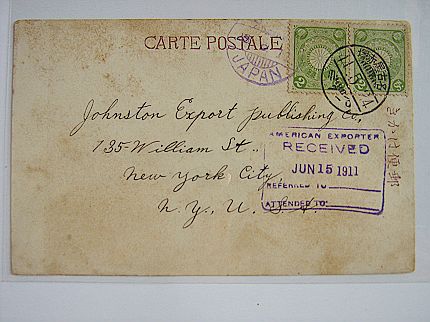 CARTE POSTALE
JAPAN
Johnston Export Publishing Co,
135-William St..
New York City,
N. Y., U. S. A.
AMERICAN EXPORTER
RECEIVED
JUN 15 1911
REFERRED TO
ATTENDED TO